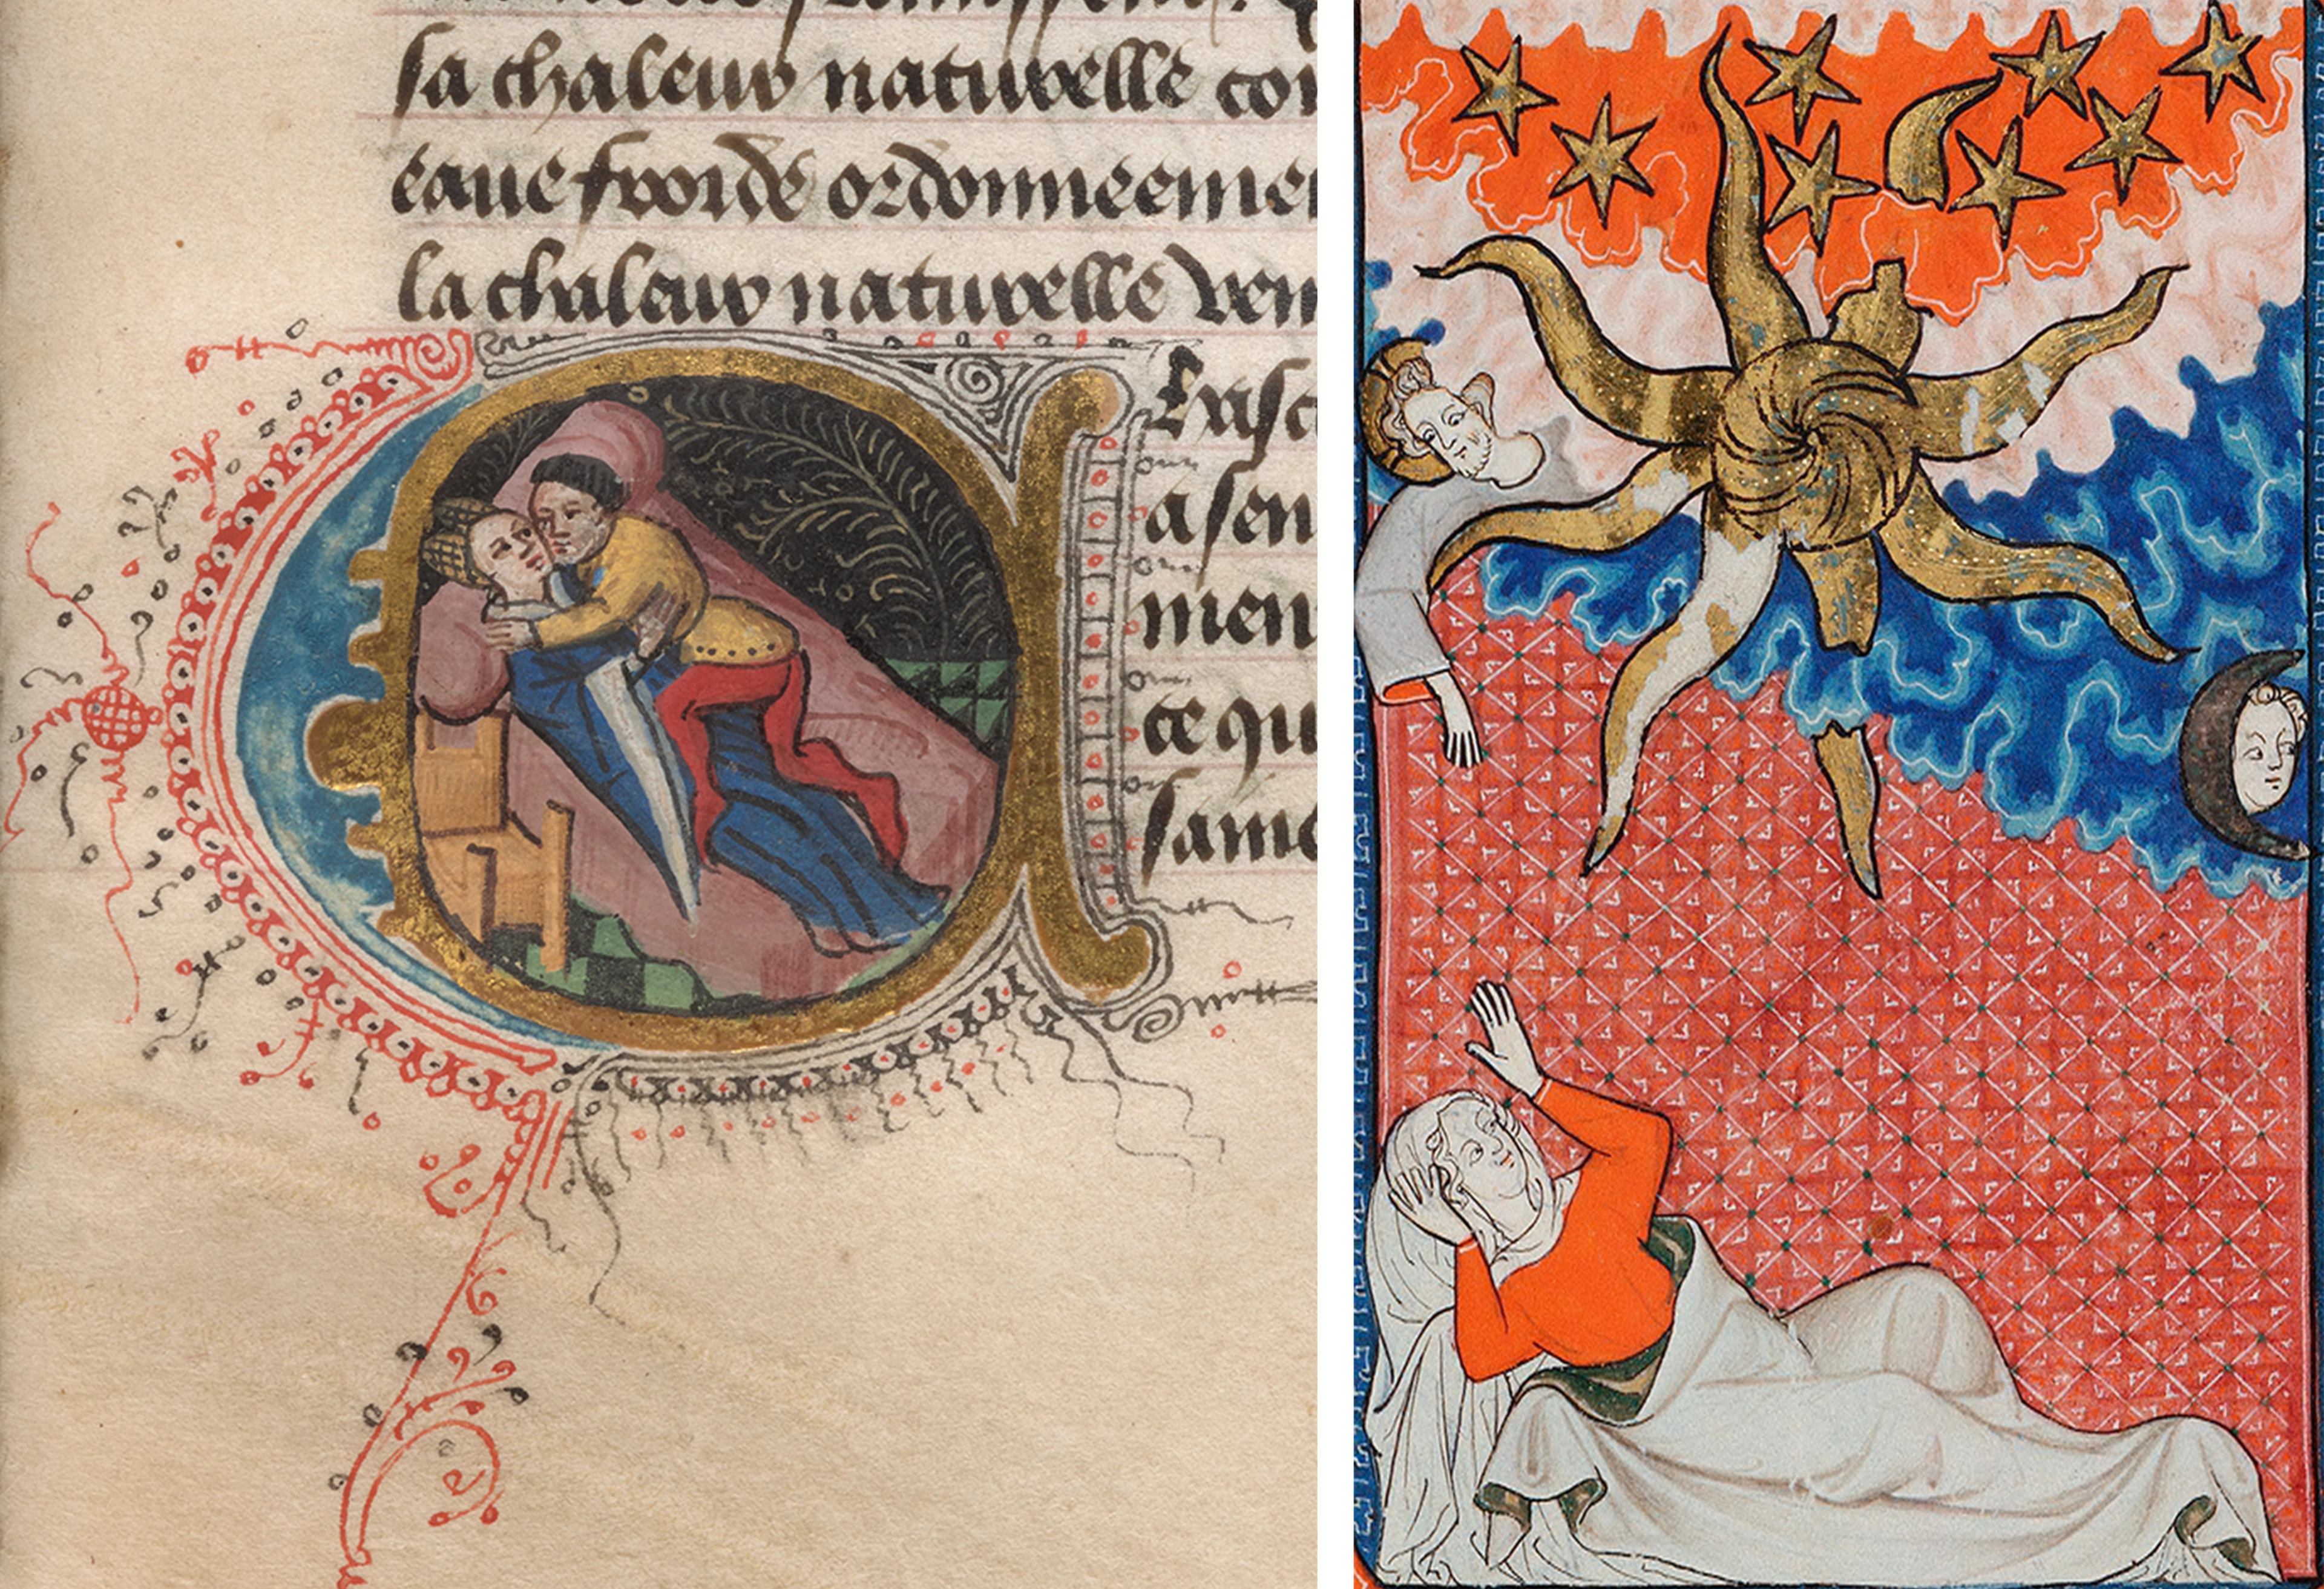 sa chaleur naturelle
eaue froide ordonneemen
la chaleur naturelle ven
a sen
men
ce qu